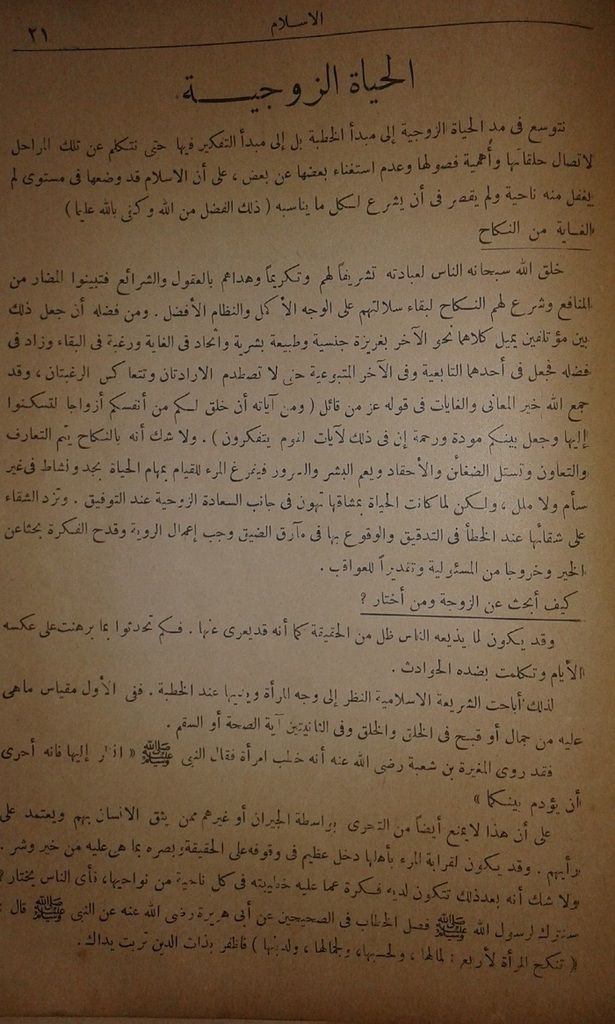 الاسلام
٢١
الحياة الزوجيـــة
نتوسع فى مد الحياة الزوجية إلى مبدأ الخطبة بل إلى مبدأ التفكير فيها حتى نتكلم عن تلك المراحل
لاتصال حلقاتها وأهمية فصولها وعدم استغناء بعضها عن بعض ، على أن الاسلام قد وضعها فى مستوى لم
يغفل منه ناحية ولم يقصر فى أن يشرع لكل ما يناسبه ( ذلك الفضل من الله وكفى بالله عليما )
الغاية من النكاح
خلق الله سبحانه الناس لعبادته تشريفاً لهم وتكريماً وهداهم بالعقول والشرائع فتبينوا المضار من
المنافع وشرع لهم النكاح لبقاء سلالتهم على الوجه الأكمل والنظام الأفضل . ومن فضله أن جعل ذلك
بين مؤتلفين يميل كلاهما نحو الآخر بغريزة جنسية وطبيعة بشرية واتحاد فى الغاية ورغبة فى البقاء وزاد فى
فضله فجعل فى أحدهما التابعية وفى الآخر المتبوعية حتى لا تصطدم الارادتان وتتعاكس الرغبتان ، وقد
جمع الله خير المعانى والغايات فى قوله عز من قائل ( ومن آياته أن خلق لكم من أنفسكم أزواجا لتسكنوا
إليها وجعل بينكم مودة ورحمة إن فى ذلك لآيات لقوم يتفكرون ) . ولا شك أنه بالنكاح يتم التعارف
والتعاون وتستل الضغائن والأحقاد ويعم البشر والسرور فيتفرغ المرء للقيام بمهام الحياة بجد ونشاط فى غير
سأم ولا ملل ، ولكن لما كانت الحياة بمشاقها تهون فى جانب السعادة الزوجية عند التوفيق . وتزد الشقاء
على شقائها عند الخطأ فى التدقيق والوقوع بها فى مآزق الضيق وجب إعمال الروية وقدح الفكرة بحثا عن
الخير وخروجا من المسئولية وتقديراً للعواقب .
كيف أبحث عن الزوجة ومن أختار ؟
وقد يكون لما يذيعه الناس ظل من الحقيقة كما أنه قد يعرى عنها . فكم تحدثوا بما برهنت على عكسه
الأيام وتكلمت بضده الحوادث .
لذلك أباحت الشريعة الاسلامية النظر إلى وجه المرأة ويديها عند الخطبة . ففى الأول مقياس ما هى
عليه من جمال أو قبح فى الخلق والخلق وفى الثانيتين آية الصحة أو السقم .
فقد روى المغيرة بن شعبة رضى الله عنه أنه خطب امرأة فقال النبى ﷺ « انظر إليها فانه أحرى
أن يؤدم بينكما »
على أن هذا لا يمنع أيضاً من التحرى بواسطة الجيران أو غيرهم ممن يثق الانسان بهم ويعتمد على
رأيهم . وقد يكون لقرابة المرء بأهلها دخل عظيم فى وقوفه على الحقيقة وبصره بما هى عليه من خير وشر .
ولا شك أنه بعد ذلك تتكون لديه فكرة عما عليه خطيبته فى كل ناحية من نواحيها، فأى الناس يختار ؟
سنترك لرسول الله ﷺ فصل الخطاب فى الصحيحين عن أبى هريرة رضى الله عنه عن النبى ﷺ قال :
( تنكح المرأة لأربع : لمالها ، ولحسبها، ولجمالها ، ولدينها ) فاظفر بذات الدين تربت يداك .